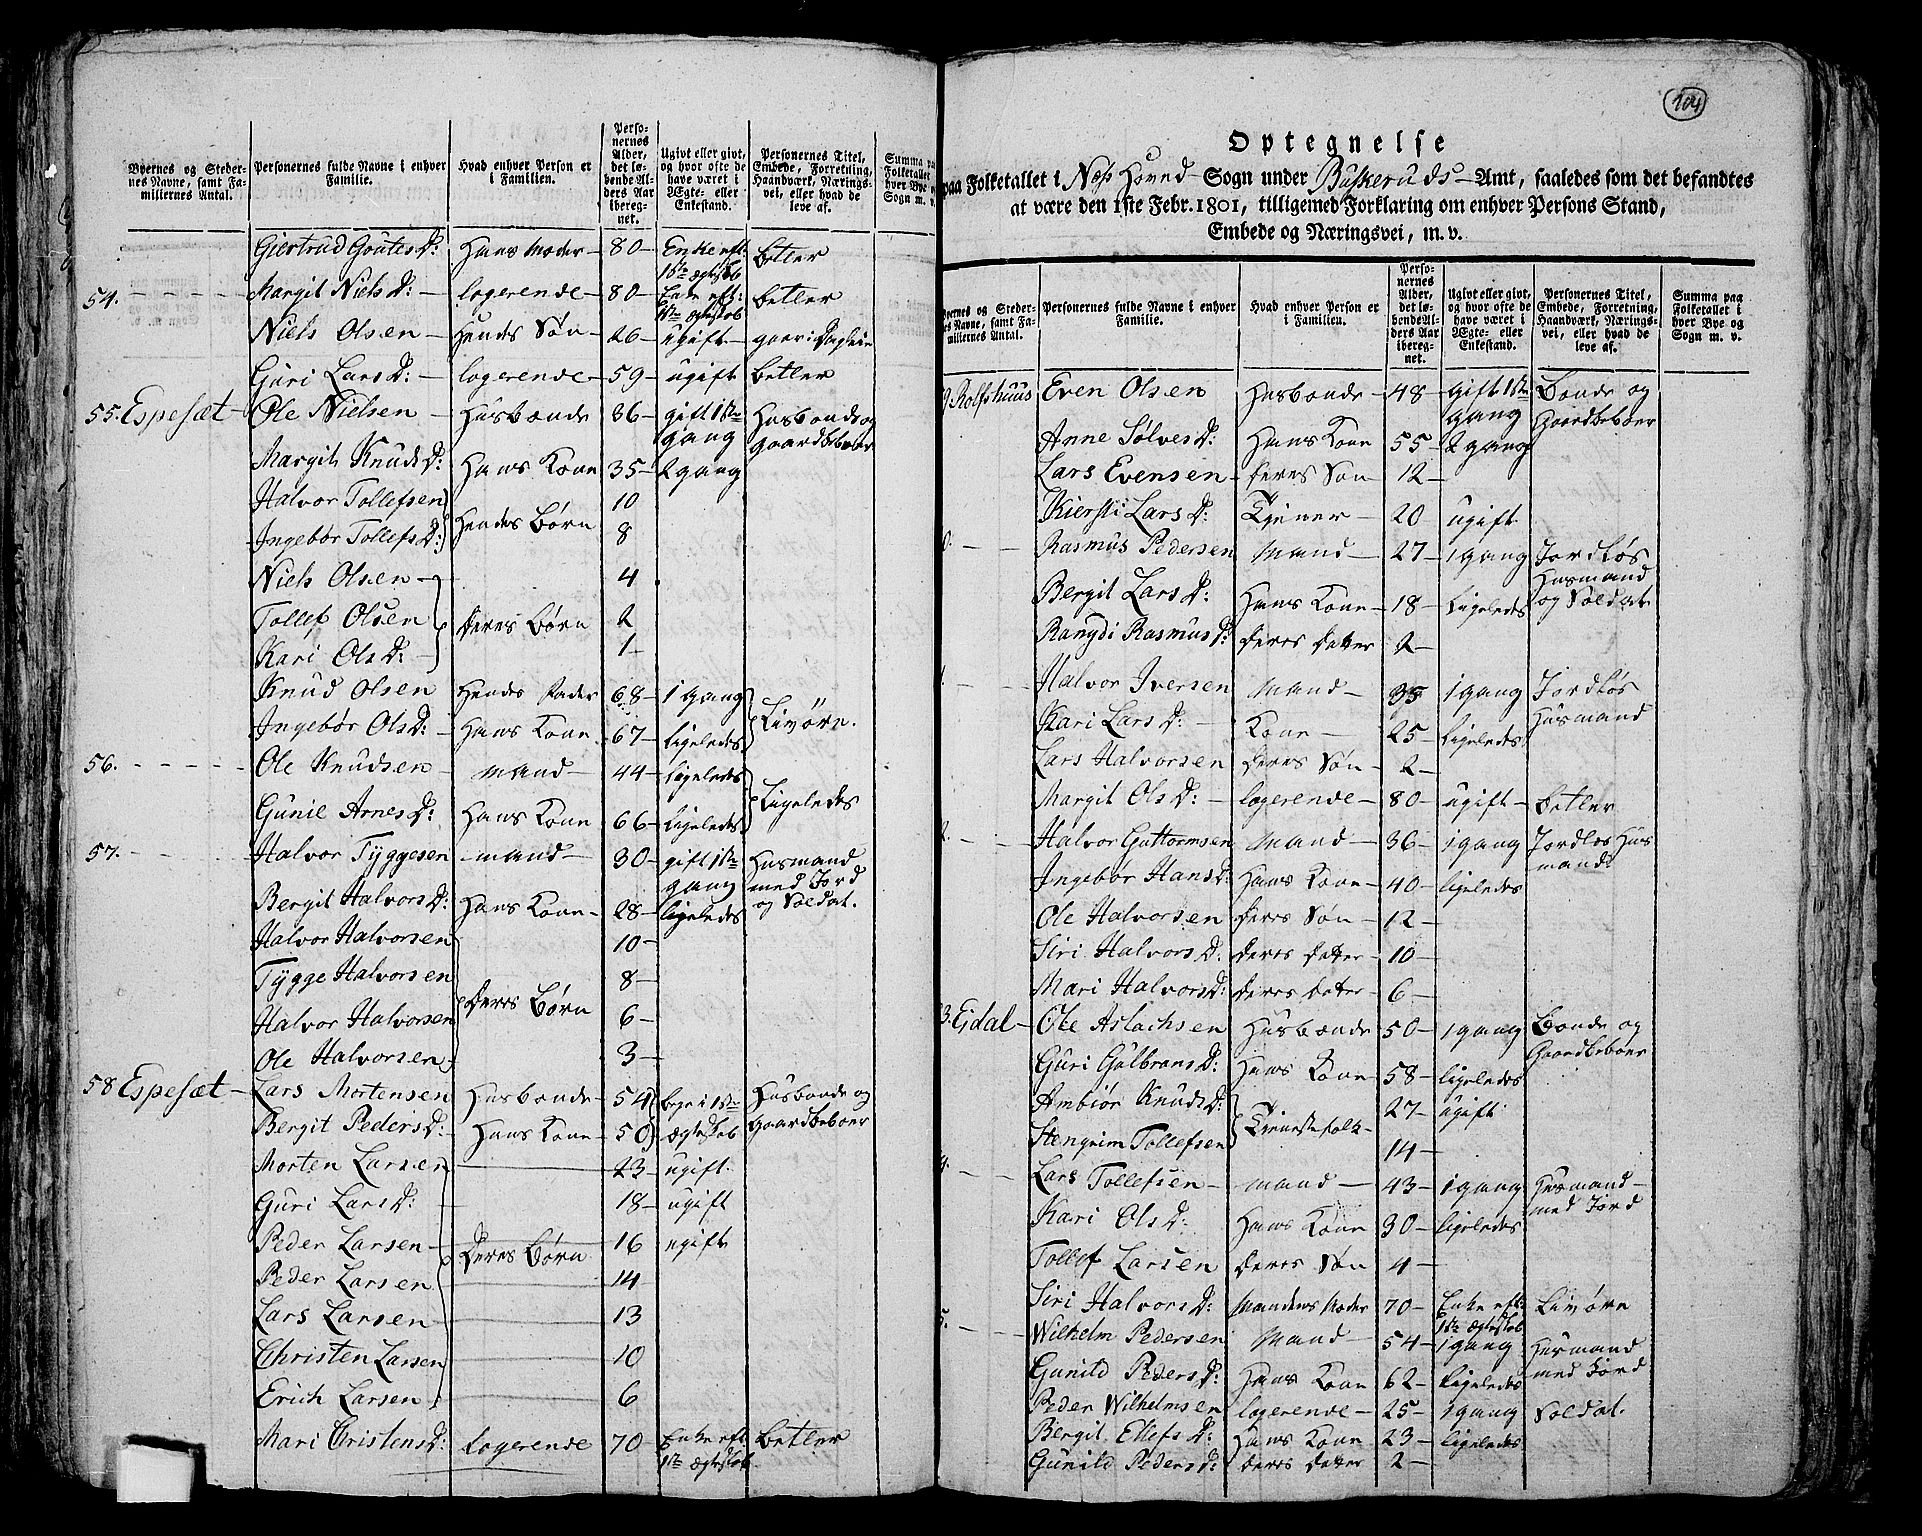 Byernes og Steder-
nes Navne, samt Fa-
miliernes Antal.
Personernes fulde Navne i enhver
Familie.
Hvad enhver Person er
i Familien.
Perso-
nernes
Alder,
det lø-
bende Al-
ders Aar
iberegnet.
Ugivt eller givt,
og hvor ofte de
have været i
Ægte- eller
Enkestand.
Personernes Titel,
Embede, Forretning,
Haandværk, Nærings-
vei, eller hvad de
leve af.
Summa paa
Folketallet
i hver Bye og
Sogn m. v.
Giertrud Goutes D: Hans Moder 80 Enke eft: 1ste Ægteskab betler
54. Margit Niels D: logerende 80 Enke eft: 1ste Ægteskab betler
Niels Olsen Hendes Søn 26 ugift gaar i Dagleie
Guri Lars D: logerende 59 ugift betler
55. Espesæt Ole Nielsen Husbonde 36 gift 1ste gang Husbonde og Gaardbeboer
Margit Knuds D: Hans Kone 35 2 gang
Halvor Tollefsen 10
Ingebør Tollefs D: Hendes Børn 8
Niels Olsen 4
Tollef Olsen Deres Børn 2
Kari Ols D: 1
Knud Olsen Hendes Fader 68 1 gang
Ingebør Ols D: Hans Kone 67 ligeledes Livørn.
56. Ole Knudsen Mand 44 ligeledes
Gunil Arnes D: Hans Kone 66 ligeledes Ligeledes
57. Halvor Tyggesen Mand 30 gift 1ste gang Husmand med Jord og Soldat.
Bergit Halvors D: Hans Kone 28 ligeledes
Halvor Halvorsen 10
Tygge Halvorsen 8
Halvor Halvorsen Deres Børn 6
Ole Halvorsen 3
58 Espesæt Lars Mortensen Husbonde 54 begge i 1ste Husbonde og
Bergit Peders D: Hans Kone 50 Ægteskab Gaardbeboer
Morten Larsen 23 ugift
Guri Lars D: 18 ugift
Peder Larsen Deres Børn 16 ugift
Peder Larsen 14
Lars Larsen 13
Christen Larsen 10
Erich Larsen 6
Mari Cristens D: Logerende 70 Enke eft: 1ste Ægteskab. betler
104
Optegnelse
paa Folketallet i Næss Hoved Sogn under Buskeruds Amt, saaledes som det befandtes
at være den 1ste Febr. 1801, tilligemed Forklaring om enhver Persons Stand,
Embede og Næringsvei, m. v.
Byernes og Steder-
nes Navne, samt Fa-
miliernes Antal.
Personernes fulde Navne i enhver
Familie.
Hvad enhver Person er
i Familien.
Perso-
nernes
Alder,
det lø-
bende Al-
ders Aar
iberegnet.
Ugivt eller givt,
og hvor ofte de
have været i
Ægte- eller
Enkestand.
Personernes Titel,
Embede, Forretning,
Haandværk, Nærings-
vei, eller hvad de
leve af.
Summa paa
Folketallet i
hver Bye og
Sogn m. v.
9 Rolfshuus Even Olsen Husbonde 48 gift 1ste gang Bonde og Gaardbeboer
Anne Sølves D: Hans Kone 55 2 gang
Lars Evensen Deres Søn 12
Kiersti Lars D: Tiener 20 ugift
0. Rasmus Pedersen Mand 27 1 gang Jordløs Husmand og Soldat
Bergit Lars D: Hans Kone 18 ligeledes
Rangdi Rasmus D: Deres Datter 2
Halvor Iversen Mand 35 1 gang Jordløs Husmand
Kari Lars D: Kone 25 ligeledes
Lars Halvorsen Deres Søn 2
Margit Ols D: logerende 80 ugift betler
2. Halvor Guttormsen Mand 36 1 gang Jordløs Husmand
Ingebør Hans D: Hans Kone 40 ligeledes
Ole Halvorsen Deres Søn 12
Siri Halvors D: Deres Datter 10
Mari Halvors D: Deres Datter 6
3. Ejdal Ole Aslachsen Husbonde 50 1 gang Bonde og Gaardbeboer
Guri Gulbrans D: Hans Kone 58 ligeledes
Ambiør Knuds D: 27 ugift
Stengrim Tollefsen Tienestefolk 14
Lars Tollefsen Mand 43 1 gang Husmand med Jord
Kari Ols D: Hans Kone 30 ligeledes
Tollef Larsen Deres Søn 4
Siri Halvors D: Mandens Moder 70 Enke eft: 1ste Ægteskab Livørn
5. Wilhelm Pedersen Mand 54 1 gang Husmand med Jord
Gunild Peders D: Hans Kone 62 ligeledes
Peder Wilhelmsen logerende 25 1 gang Soldat.
Bergit Ellefs D: Hans Kone 23 ligeledes
Gunild Peders D: Deres Datter 2